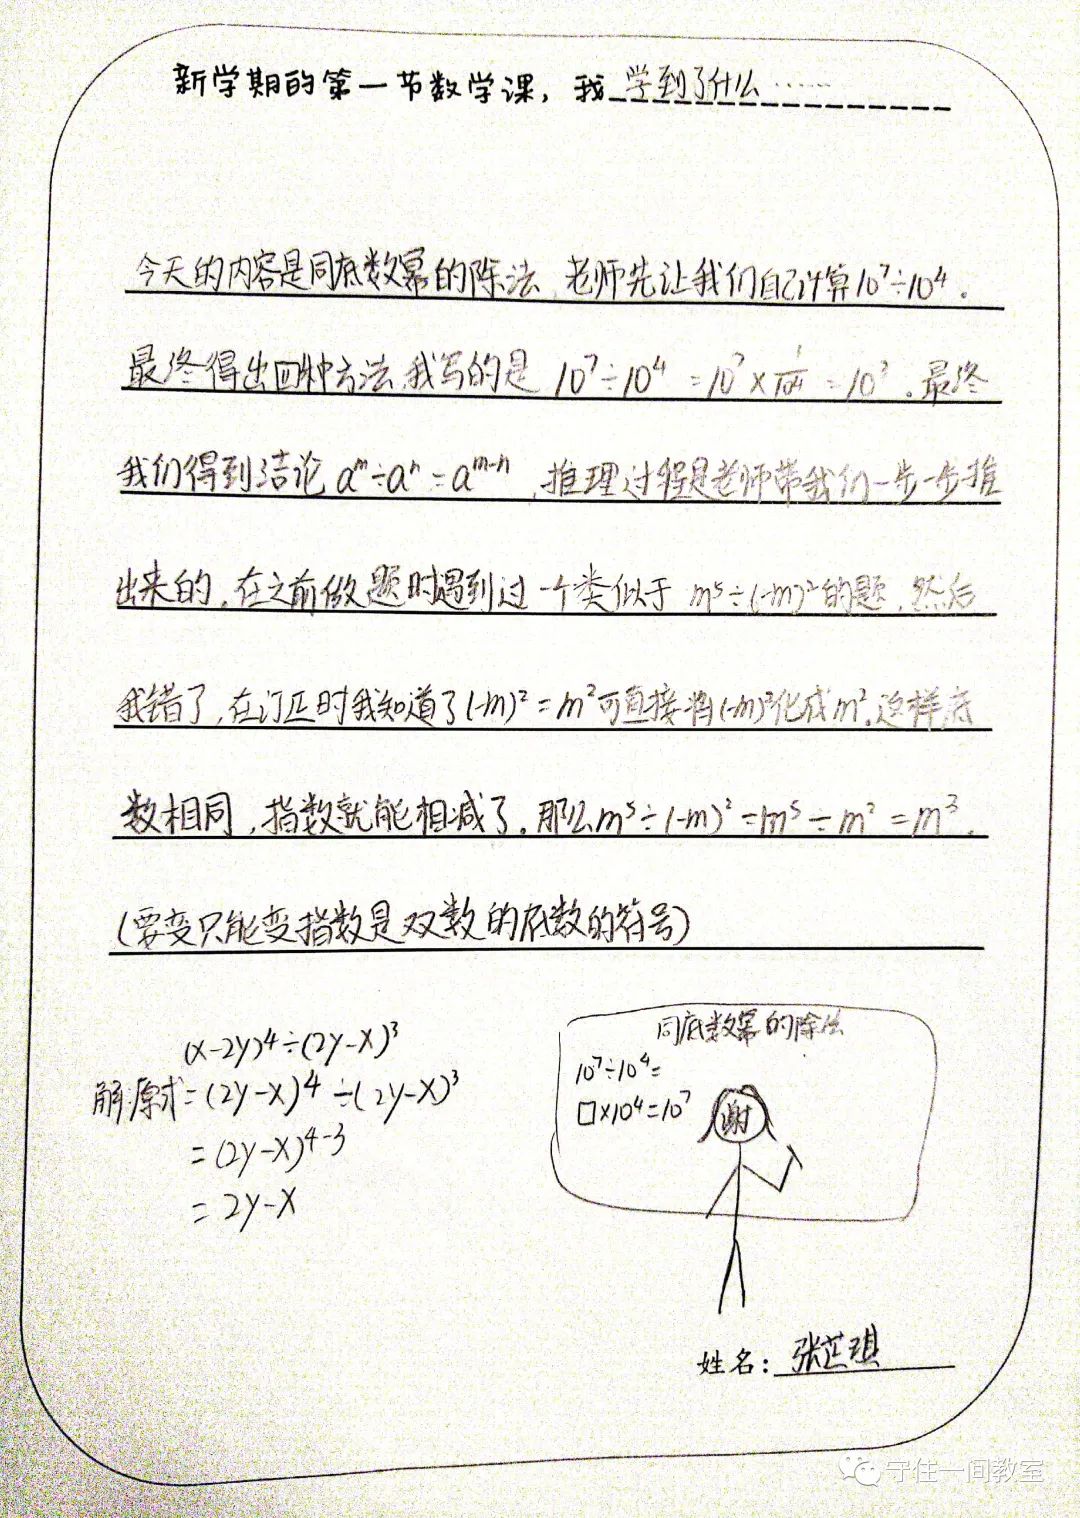 新学期的第一节数学课，我学到了什么……
今天的内容是同底数幂的除法，老师先让我们自己计算10⁷÷10⁴。
最终得出四种方法，我写的是 10⁷÷10⁴=10⁷×1/10⁴=10³。最终
我们得到结论 aᵐ÷aⁿ=aᵐ⁻ⁿ，推理过程是老师带我们一步一步推
出来的，在之前做题时遇到过一个类似于 m⁵÷(-m)²的题，然后
我错了，在订正时我知道了(-m)²=m²可直接将(-m)²化成m²，这样底
数相同，指数就能相减了。那么m⁵÷(-m)²=m⁵÷m²=m³。
(要变只能变指数是双数的底数的符号)
(x-2y)⁴÷(2y-x)³
解:原式=(2y-x)⁴÷(2y-x)³
=(2y-x)⁴⁻³
=2y-x
同底数幂的除法
10⁷÷10⁴=
□×10⁴=10⁷
谢
姓名：张芷琪
守住一间教室